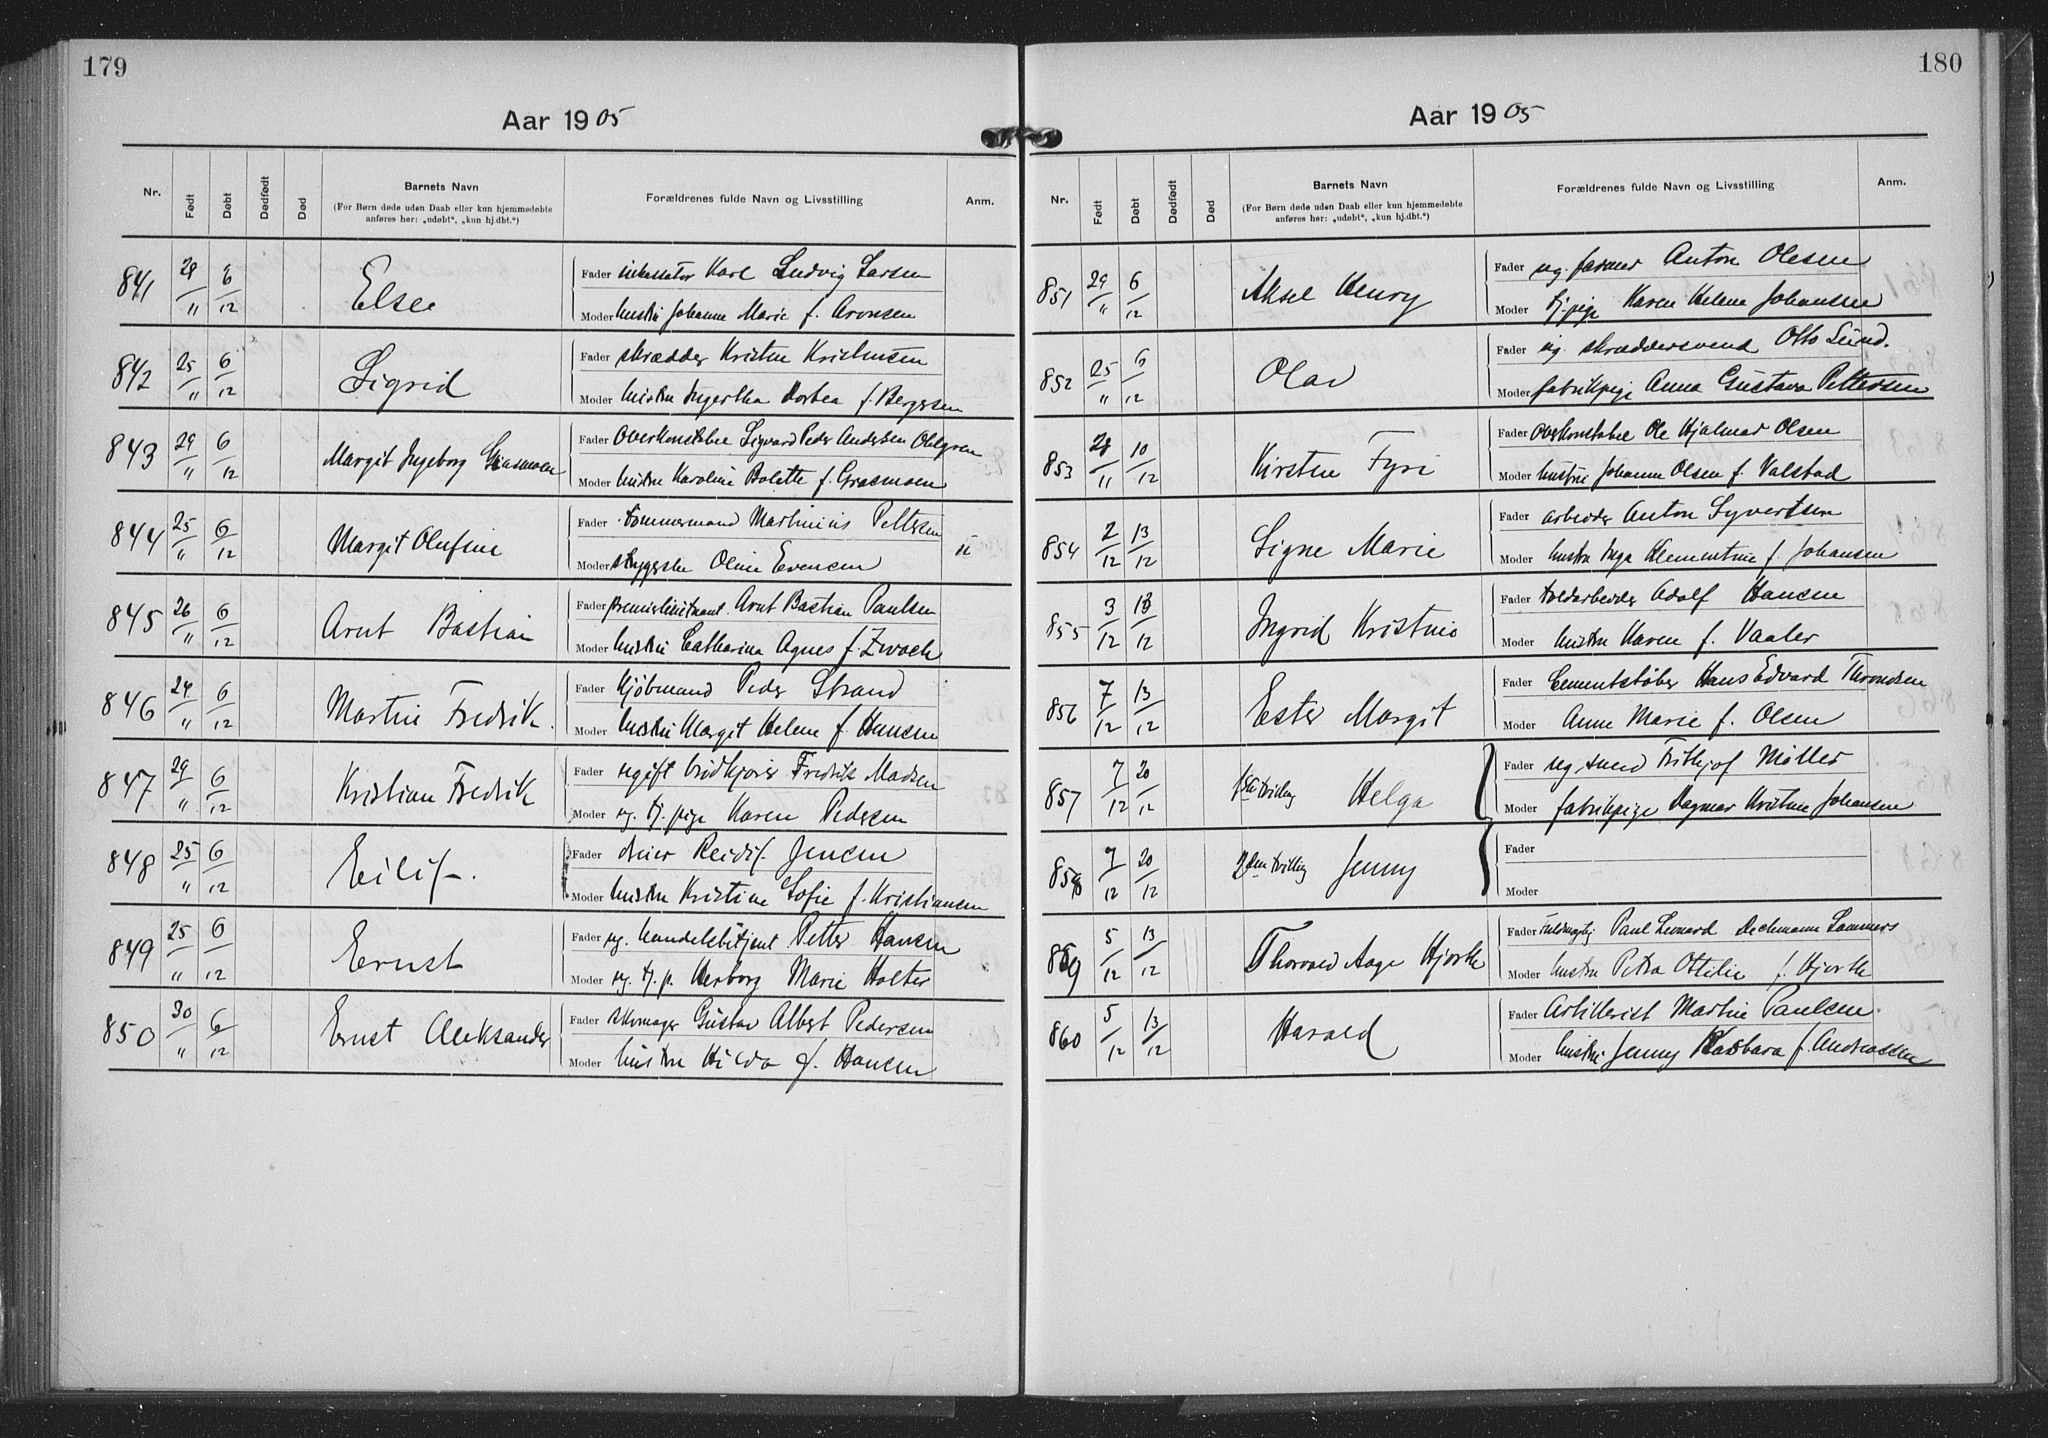 179
Aar 1905
Nr. Født Døbt Dødfødt Død Barnets Navn Forældrenes fulde Navn og Livsstilling Anm.
(For Børn døde uden Daab eller kun hjemmedøbte
anføres her: „udøbt“, „kun hj.dbt.“)
841 28/11 6/12 Else Fader inkassator Karl Ludvig Larsen
Moder hustru Johanne Marie f. Aronsen
842 25/11 6/12 Sigrid Fader skrædder Kristen Kristensen
Moder hustru Dortea f. Bergersen
843 29/11 6/12 Margit Ingeborg Grasmoen Fader Overkonstabel Sigvard Peder Andersen Ohlgren
Moder hustru Karoline Bolette f. Grasmoen
844 25/11 6/12 Margit Olufine Fader tømmermand Martinius Pettersen
Moder Oline Evensen u
845 26/11 6/12 Arnt Bastian Fader premierlieutnant Arnt Bastian Paulsen
Moder hustru Catharina Agnes f. Zwack
846 24/11 6/12 Martin Fredrik. Fader kjøbmand Peder Strand
Moder hustru Margit Helene f. Hansen
847 29/11 6/12 Kristian Fredrik Fader ugift Fredrik Madsen
Moder ug. tj. pige Karen Pedersen
848 25/11 6/12 Eilif. Fader dreier Reidif. Jensen
Moder hustru Kristine Sofie f. Kristiansen
849 25/11 6/12 Ernst Fader ug. handelsbetjent Petter Hansen
Moder ug. tj. p. Herborg Marie Holter
850 30/11 6/12 Ernst Aleksander Fader skomager Gustav Albert Pedersen
Moder hustru Hilda f. Hansen
180
Aar 1905
Nr. Født Døbt Dødfødt Død Barnets Navn Forældrenes fulde Navn og Livsstilling Anm.
(For Børn døde uden Daab eller kun hjemmedøbte
anføres her: „udøbt“, „kun hj.dbt.“)
851 29/11 6/12 Aksel Henry Fader ug. farver Anton Olesen
Moder tj. pige Karen Helene Johansen
852 25/11 6/12 Olav Fader ug. skræddersvend Otto Lund.
Moder fabrikpige Anna Gustava Pettersen
853 28/11 10/12 Kirsten Fyri Fader Overkonstabel Ole Hjalmar Olsen
Moder hustru Johanne Olsen f. Valstad
854 2/12 13/12 Signe Marie Fader arbeider Anton Syvertsen
Moder hustru Inga Klementine f. Johansen
855 3/12 13/12 Ingrid Kristine Fader toldarbeider Adolf Hansen
Moder hustru Karen f. Vaaler
856 7/12 13/12 Ester Margit Fader Cementstøber Hans Edvard Throndsen
Moder Anne Marie f. Olsen
857 7/12 20/12 1ste tvilling Helga Fader ug. smed Frithjof Møller
Moder fabrikpige Dagmar Kristine Johansen
858 7/12 20/12 2den tvilling Jenny Fader
Moder
859 5/12 13/12 Thorvald Aage Hjorth Fader fuldmægtig Paul Leonard Dechmann Sammers
Moder hustru Petra Ottilie f. Hjorth
860 5/12 13/12 Harald Fader Artillerist Martin Paulsen.
Moder hustru Jenny Barbara f. Andreassen